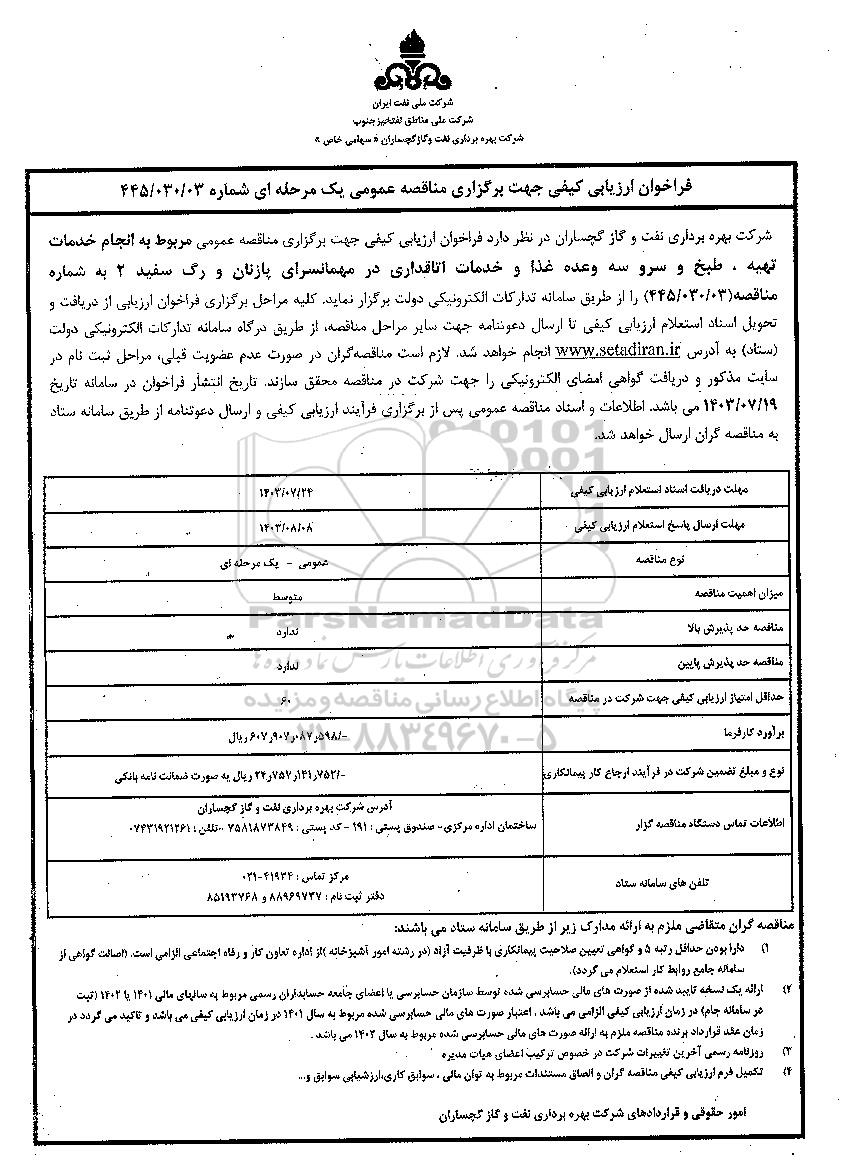 شرکت ملی نفت ایران
شرکت ملی مناطق نفتخیز جنوب
شرکت بهره برداری نفت وگاز گچساران « سهامی خاص »
فراخوان ارزیابی کیفی جهت برگزاری مناقصه عمومی یک مرحله ای شماره ۴۴۵/۰۳۰/۰۳
شرکت بهره برداری نفت و گاز گچساران در نظر دارد فراخوان ارزیابی کیفی جهت برگزاری مناقصه عمومی مربوط به انجام خدمات
تهیه ، طبخ و سرو سه وعده غذا و خدمات اتاقداری در مهمانسرای پازنان و رگ سفید ۲ به شماره
مناقصه(۴۴۵/۰۳۰/۰۳) را از طریق سامانه تدارکات الکترونیکی دولت برگزار نماید. کلیه مراحل برگزاری فراخوان ارزیابی از دریافت و
تحویل اسناد استعلام ارزیابی کیفی تا ارسال دعوتنامه جهت سایر مراحل مناقصه، از طریق درگاه سامانه تدارکات الکترونیکی دولت
(ستاد) به آدرس www.setadiran.ir انجام خواهد شد. لازم است مناقصه‌گران در صورت عدم عضویت قبلی، مراحل ثبت نام در
سایت مذکور و دریافت گواهی امضای الکترونیکی را جهت شرکت در مناقصه محقق سازند. تاریخ انتشار فراخوان در سامانه تاریخ
۱۴۰۳/۰۷/۱۹ می باشد. اطلاعات و اسناد مناقصه عمومی پس از برگزاری فرآیند ارزیابی کیفی و ارسال دعوتنامه از طریق سامانه ستاد
به مناقصه گران ارسال خواهد شد.
مهلت دریافت اسناد استعلام ارزیابی کیفی ۱۴۰۳/۰۷/۲۴
مهلت ارسال پاسخ استعلام ارزیابی کیفی ۱۴۰۳/۰۸/۰۸
نوع مناقصه عمومی - یک مرحله ای
میزان اهمیت مناقصه متوسط
مناقصه حد پذیرش بالا ندارد
مناقصه حد پذیرش پایین ندارد
حداقل امتیاز ارزیابی کیفی جهت شرکت در مناقصه ۶۰
برآورد کارفرما ۶۰۷٫۹۰۷٫۰۸۷٫۵۹۸/- ریال
نوع و مبلغ تضمین شرکت در فرآیند ارجاع کار پیمانکاری ۲۴٫۷۵۷٫۱۴۱٫۷۵۲/- ریال به صورت ضمانت نامه بانکی
اطلاعات تماس دستگاه مناقصه گزار
آدرس شرکت بهره برداری نفت و گاز گچساران
ساختمان اداره مرکزی- صندوق پستی : ۱۹۱ - کد پستی : ۷۵۸۱۸۷۳۸۴۹ -تلفن : ۰۷۴۳۱۹۲۱۲۶۱
تلفن های سامانه ستاد
مرکز تماس : ۴۱۹۳۴-۰۲۱
دفتر ثبت نام : ۸۸۹۶۹۷۳۷ و ۸۵۱۹۳۷۶۸
مناقصه گران متقاضی ملزم به ارائه مدارک زیر از طریق سامانه ستاد می باشند:
۱) دارا بودن حداقل رتبه ۵ و گواهی تعیین صلاحیت پیمانکاری با ظرفیت آزاد (در رشته امور آشپزخانه )از اداره تعاون کار و رفاه اجتماعی الزامی است. (اصالت گواهی از
سامانه جامع روابط کار استعلام می گردد).
۲) ارائه یک نسخه تایید شده از صورت های مالی حسابرسی شده توسط سازمان حسابرسی یا اعضای جامعه حسابداران رسمی مربوط به سالهای مالی ۱۴۰۱ یا ۱۴۰۲ (ثبت
در سامانه جام) در زمان ارزیابی کیفی الزامی می باشد . اعتبار صورت های مالی حسابرسی شده مربوط به سال ۱۴۰۱ در زمان ارزیابی کیفی می باشد و تاکید می گردد در
زمان عقد قرارداد برنده مناقصه ملزم به ارائه صورت های مالی حسابرسی شده مربوط به سال ۱۴۰۲ می باشد .
۳) روزنامه رسمی آخرین تغییرات شرکت در خصوص ترکیب اعضای هیات مدیره
۴) تکمیل فرم ارزیابی کیفی مناقصه گران و الصاق مستندات مربوط به توان مالی ، سوابق کاری،ارزشیابی سوابق و...
امور حقوقی و قراردادهای شرکت بهره برداری نفت و گاز گچساران
ParsNamadData
مرکز فرآوری اطلاعات پارس نماد داده ها
پایگاه اطلاع رسانی مناقصه و مزیده
۰۲۱-۸۸۳۴۹۶۷۰-۵